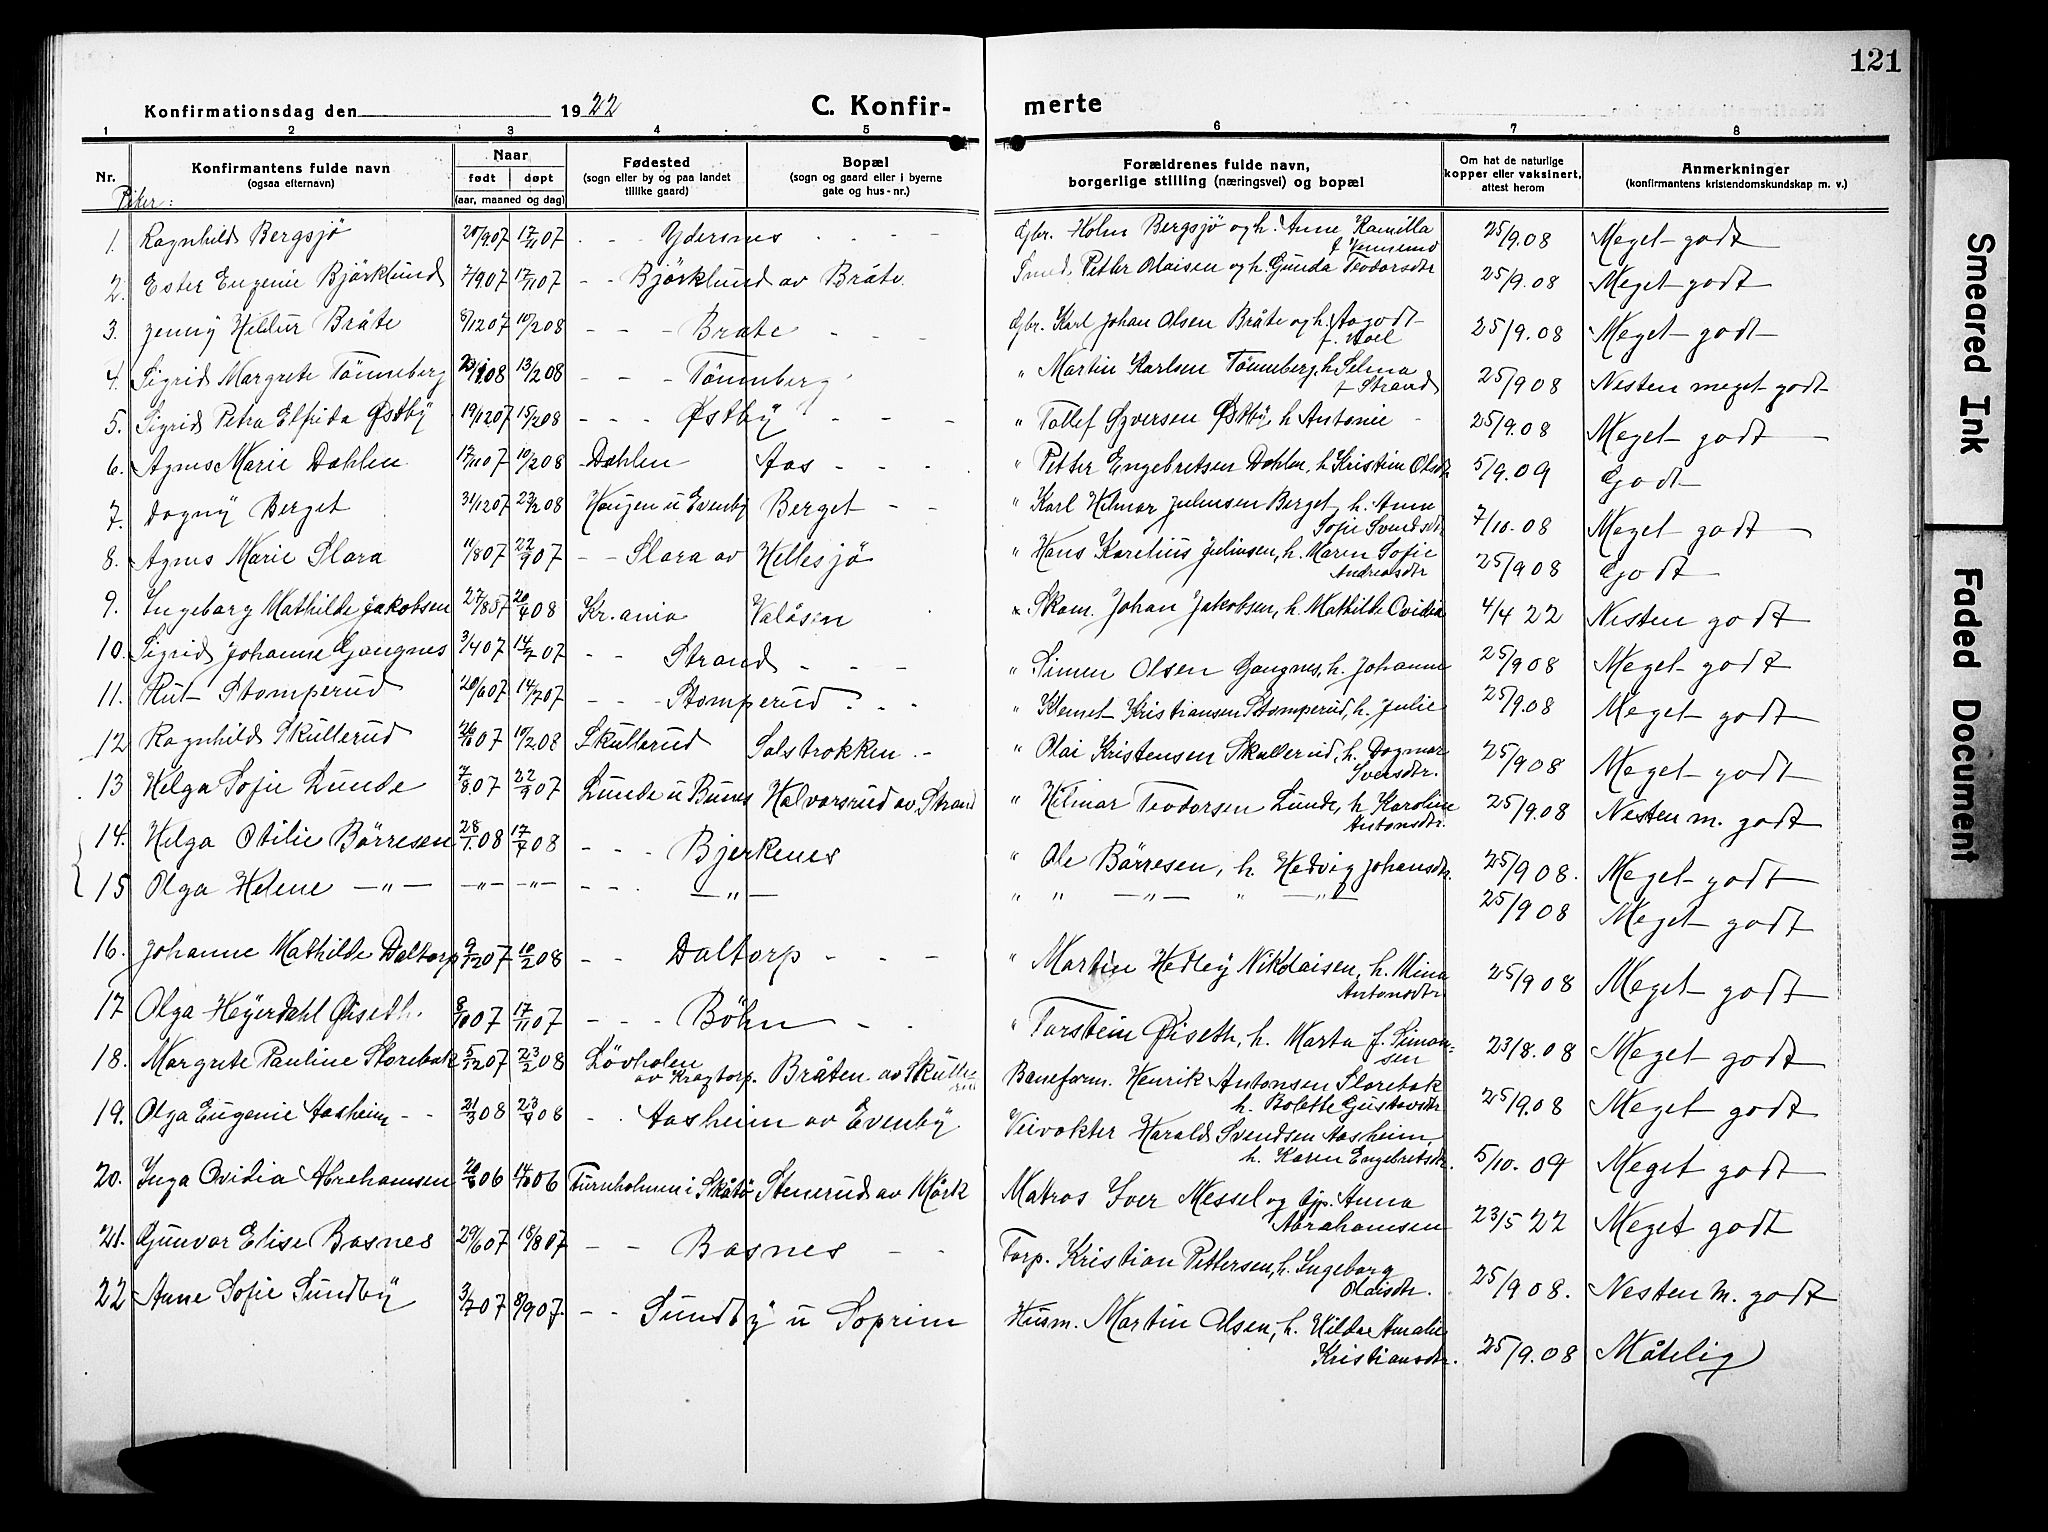 121
Konfirmationsdag den 1922 C. Konfirmerte
1 2 3 4 5 6 7 8
Nr. Konfirmantens fulde navn (ogsaa efternavn) Naar født døpt (aar, maaned og dag) Fødested (sogn eller by og paa landet tillike gaard) Bopæl (sogn og gaard eller i byerne gate og hus-nr.) Forældrenes fulde navn, borgerlige stilling (næringsvei) og bopæl Om hat de naturlige kopper eller vaksinert, attest herom Anmerkninger (konfirmantens kristendomskundskap m. v.)
Piker:
1. Ragnhild Bergsjö 20/907 17/1107 - - Ydersnes - - - Gbr. Holm Bergsjø og h. Anne Kamilla f. Vennemo 25/9.08 Meget godt
2. Ester Eugenie Björklund 7/907 17/1107 - - Björklund av Bråte. Smed. Petter Olaisen og h. Gunda Teodorsdtr 25/9.08 Meget godt
3. Jenny Hildur Bråte 8/1207 10/208 - - - Bråte - - - Gbr. Karl Johan Olsen Bråte og h. Aagodt f. Noel 25/9.08 Meget godt
4. Sigrid Margrete Tönneberg 23/108 13/208 - - - Tönneberg " Martin Karlsen Tønneberg, h. Selma f. Strand 25/908 Nesten meget godt
5. Sigrid Petra Elfrida Østby 19/1207 15/208 - - - Østby - - - " Tollef Syversen Østby, h Antonie - 25/9.08 Meget godt
6. Agnes Marie Dahlen 17/1107 10/208 Dahlen Aas - - - " Petter Engebretsen Dahlen, h. Kristine Olsdtr 5/9.09 Godt
7. Dagny Berget 31/1207 23/208 Haugen u Evenby Berget - - " Karl Hilmar Juliussen Berget, h. Anne Sofie Svendsdtr 7/10.08 Meget godt
8. Agnes Marie Slara 11/807 22/907 - - Slara av Hellesjö " Hans Karelius Juliusen, h. Maren Sofie Andreasdtr 25/908 Godt
9. Ingeborg Mathilde Jakobsen 27/807 20/408 Kr.ania Valåsen " Skom. Johan Jakobsen, h. Mathilde Ovidia 4/4 22 Nesten godt
10. Sigrid Johanne Gangnes 3/407 14/707 - - Strand - - - " Simen Olsen Gangnes, h. Johanne 25/908 Meget godt
11. Rut Stomperud 20/607 14/707 - - Stomperud - - - " Klemet Kristiansen Stomperud, h. Julie 25/9.08 Meget godt
12 Ragnhild Skullerud 26/607 10/208 Skullerud Solstrokken - " Olai Kristensen Skullerud, h. Dagmar Iversdtr. 25/908 Meget godt
13 Helga Sofie Lunde 7/807 22/907 Lunde u Bunes Halvorsrud av Strand " Hilmar Teodorsen Lunde, h. Karoline Antonsdtr. 25/9.08 Nesten m. godt
14. Helga Otilie Börresen 28/108 17/408 - - - Bjerkenes " Ole Börresen, h Hedvig Johansdtr. 25/908. Meget godt
15 Olga Helene —"— -"- -"- - - - —"— " " —"— " —"— 25/908 Meget godt
16. Johanne Mathilde Daltorp 9/1207 10/208 - - Daltorp - - - " Martin Hedley Nikolaisen, h. Mina Antonsdtr 25/908 Meget godt
17 Olga Heyerdahl Øiseth. 8/1007 17/1107 - - - Böhn - - " Torstein Øiseth, h. Marta f. Simonsen 23/8.08 Meget godt
18. Margrete Pauline Storebak 5/1207 23/208 Lövholen av Kragtorp. Bråten av Skullerud Baneform. Henrik Antonsen Storebak h. Bolette Gustavsdtr 25/9.08 Meget godt
19. Olga Eugenie Aasheim - - 21/308 23/408 - - Aasheim av Evenby. Veivokter Harald Svendsen Aasheim, h. Karen Engebretsdtr. 5/10.09 Meget godt
20. Inga Ovidia Abrahamsen 20/606 14/1006 Furuholmen i Skåtö Stenerud av Mörk Matros Iver Messel og tjp. Anna Abrahamsen 23/5 22 Meget godt
21. Gunvor Elise Basnes 29/607 18/807 - - Basnes - - Torp. Kristian Pettersen, h. Ingeborg Olaisdtr. 25/908. Nesten m. godt
22 Anne Sofie Sundby 3/707 8/907 - - Sundby u Soprim Husm. Martin Olsen, h. Hilda Amalie Kristiansdtr. 25/9.08 Måtelig
Smeared Ink
Faded Document